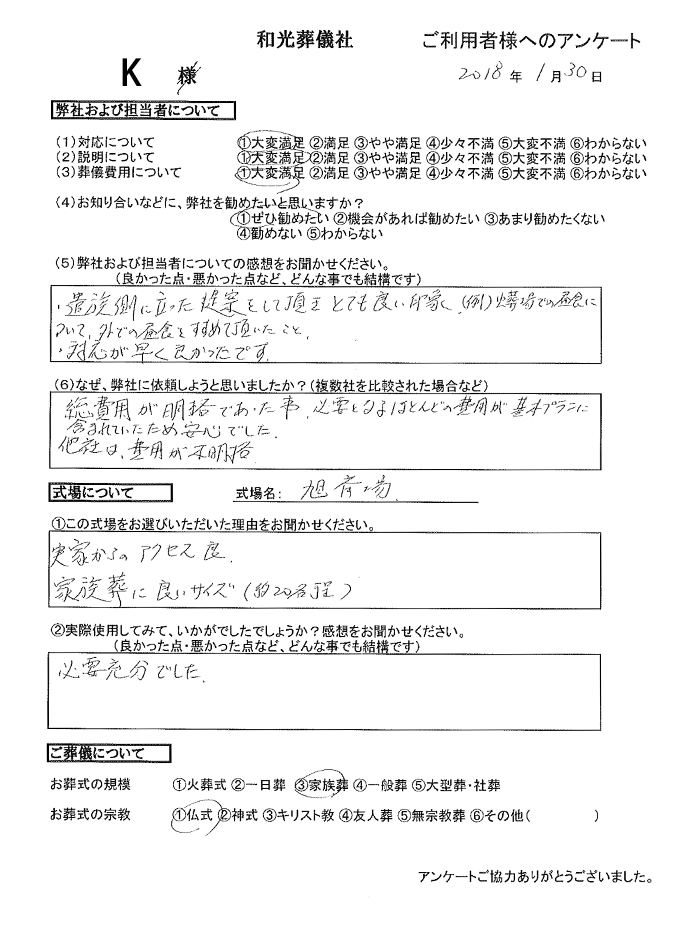 和光葬儀社 ご利用者様へのアンケート
K 様
2018 年 1 月 30 日
弊社および担当者について
(1)対応について ①大変満足 ②満足 ③やや満足 ④少々不満 ⑤大変不満 ⑥わからない
(2)説明について ①大変満足 ②満足 ③やや満足 ④少々不満 ⑤大変不満 ⑥わからない
(3)葬儀費用について ①大変満足 ②満足 ③やや満足 ④少々不満 ⑤大変不満 ⑥わからない
(4)お知り合いなどに、弊社を勧めたいと思いますか?
①ぜひ勧めたい ②機会があれば勧めたい ③あまり勧めたくない
④勧めない ⑤わからない
(5)弊社および担当者についての感想をお聞かせください。
(良かった点・悪かった点など、どんな事でも結構です)
・遺族側に立った提案をして頂き とても良い印象 (例)火葬場での昼食に
ついて、外での昼食をすすめて頂いたこと.
・対応が早く良かったです.
(6)なぜ、弊社に依頼しようと思いましたか?(複数社を比較された場合など)
総費用が明格であった事. 必要となるほとんどの費用が基本プランに
含まれていたため安心でした.
他社は、費用が不明格
式場について 式場名: 旭斎場
①この式場をお選びいただいた理由をお聞かせください。
実家からのアクセス良.
家族葬に良いサイズ(約20名程)
②実際使用してみて、いかがでしたでしょうか?感想をお聞かせください。
(良かった点・悪かった点など、どんな事でも結構です)
必要充分でした.
ご葬儀について
お葬式の規模 ①火葬式 ②一日葬 ③家族葬 ④一般葬 ⑤大型葬・社葬
お葬式の宗教 ①仏式 ②神式 ③キリスト教 ④友人葬 ⑤無宗教葬 ⑥その他( )
アンケートご協力ありがとうございました。